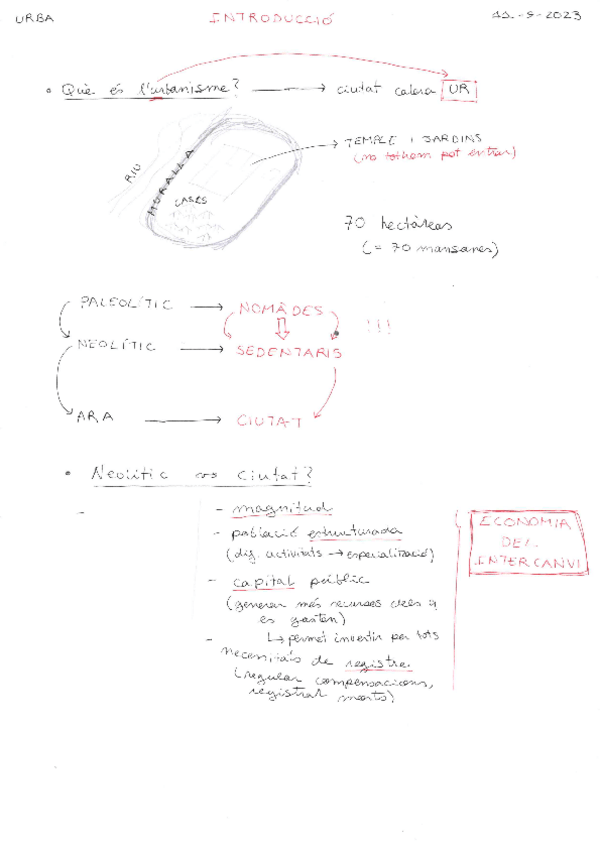 URBA
INTRODUCCIÓ
11-9-2023
• Què és l'urbanisme? → ciutat calera UR
RIU
MURALLA
CASES
→ TEMPLE I JARDINS
(no tothom pot entrar)
70 hectàreas
(= 70 mansanes)
PALEOLÍTIC → NOMÀDES
!!!
NEOLÍTIC → SEDENTARIS
ARA → CIUTAT
• Neolític ciutat?
-
- magnitud
- població estructurada
(dif. activitats → especializació)
- capital públic
(generar més recursos dels q
es gasten)
↳ permet invertir per tots
- necessitats de registre
(regular compensacions,
registrar morts)
ECONOMIA
DEL
INTERCANVI